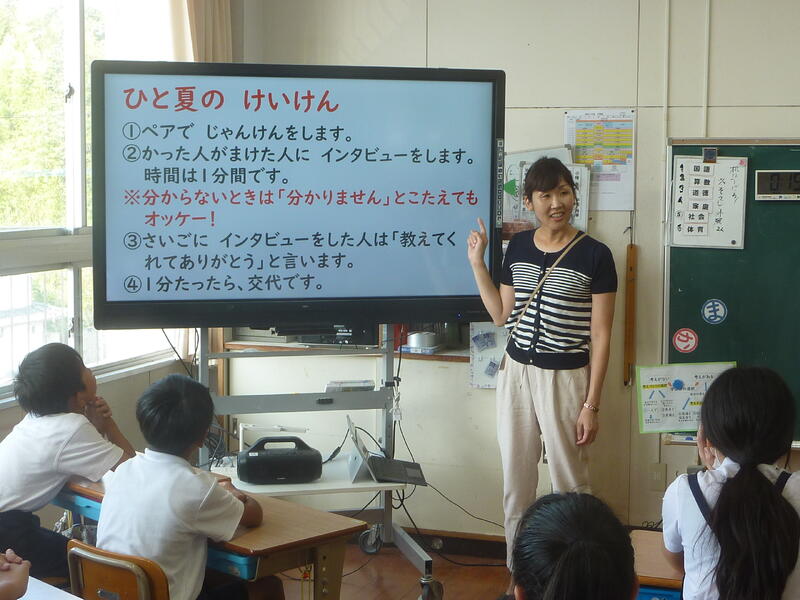 ひと夏の けいけん
①ペアで じゃんけんをします。
②かった人がまけた人に インタビューをします。
時間は1分間です。
※分からないときは「分かりません」とこたえても
オッケー!
③さいごに インタビューをした人は「教えてく
れてありがとう」と言います。
④1分たったら、交代です。
国語
算数
道徳
家庭
社会
体育
ま
か